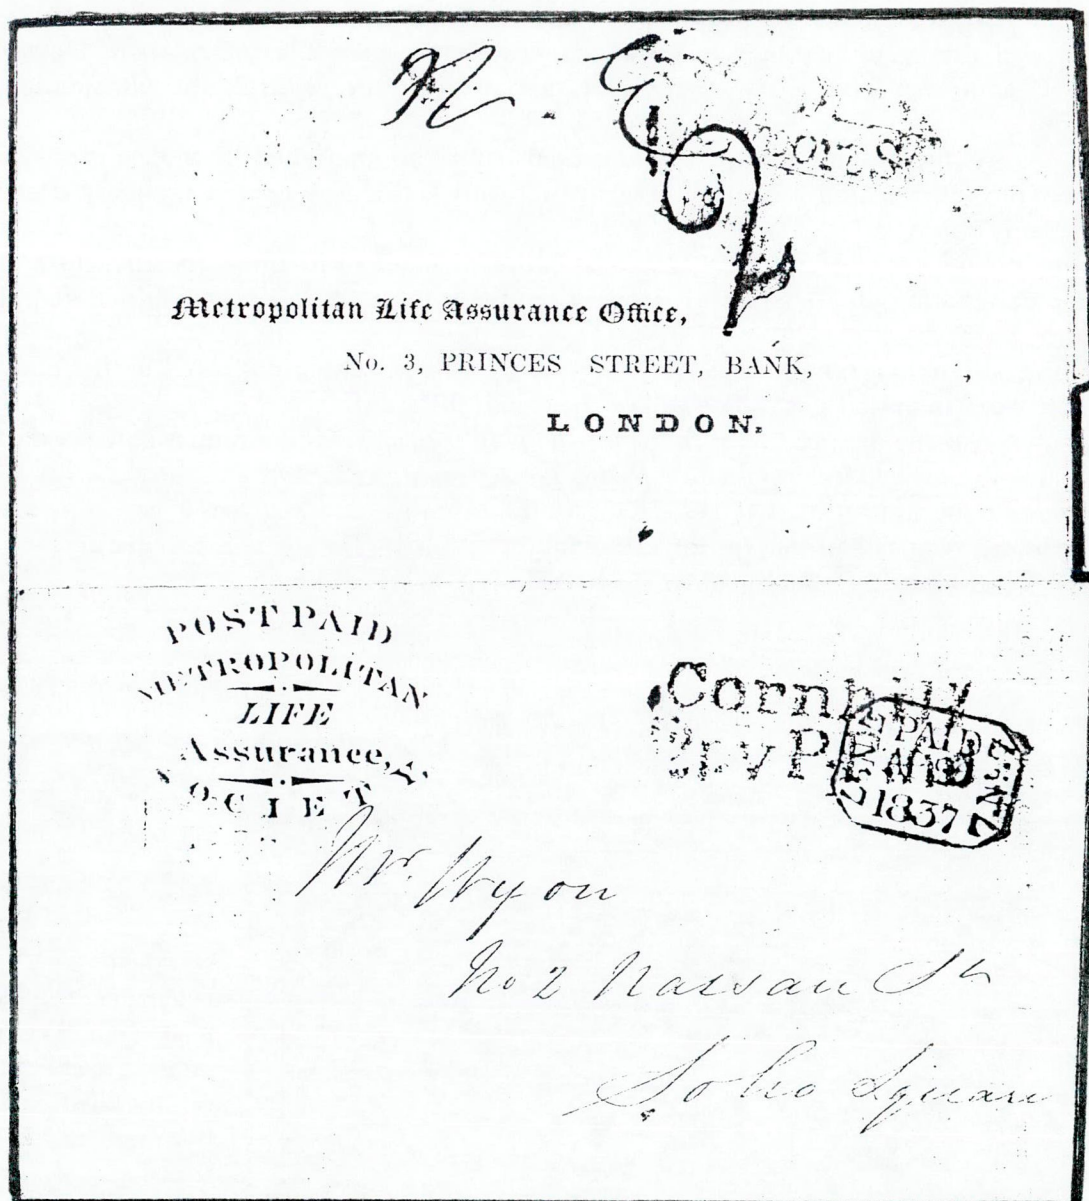 N. E.
2
Metropolitan Life Assurance Office,
No. 3, PRINCES STREET, BANK,
LONDON.
POST PAID
METROPOLITAN
LIFE
Assurance,
SOCIETY
Cornhill
PAID
1837
Mr. Wyon
No 2 Nassau St
Soho Square